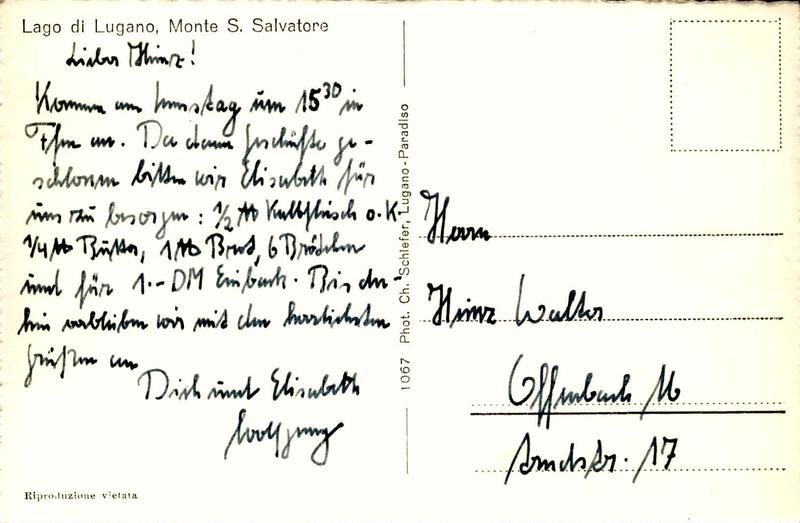 Lago di Lugano, Monte S. Salvatore
Lieber Heinz!
Komme am Samstag um 15³⁰ in
Ffm an. Da dann Geschäfte ge-
schlossen bitten wir Elisabeth für
uns zu besorgen: 1/2 ℔ Kalbfleisch o. K.
1/4 ℔ Butter, 1 ℔ Brot, 6 Brötchen
und für 1.- DM Einback. Bis da-
hin verbleiben wir mit den herzlichsten
Grüßen an
Dich und Elisabeth
Wolfgang
Riproduzione vietata
1067 Phot. Ch. Schiefer, Lugano-Paradiso
Herrn
Heinz Walter
Offenbach M
17